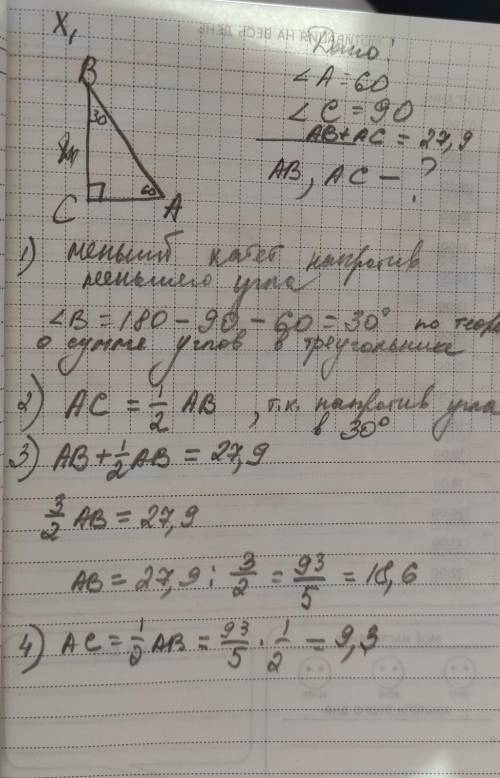 X,
Дано!
B
30
∠A = 60
∠C = 90
AB + AC = 27,9
AB, AC — ?
C
60
A
1) меньший катет напротив
меньшего угла
∠B = 180 - 90 - 60 = 30° по теоре
о сумме углов в треугольнике
2) AC = 1/2 AB, т.к. напротив угла
в 30°
3) AB + 1/2 AB = 27,9
3/2 AB = 27,9
AB = 27,9 : 3/2 = 93/5 = 18,6
4) AC = 1/2 AB = 93/5 · 1/2 = 9,3